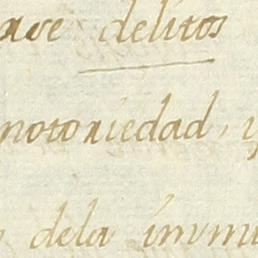 delitos
notoriedad, y
dela inmu